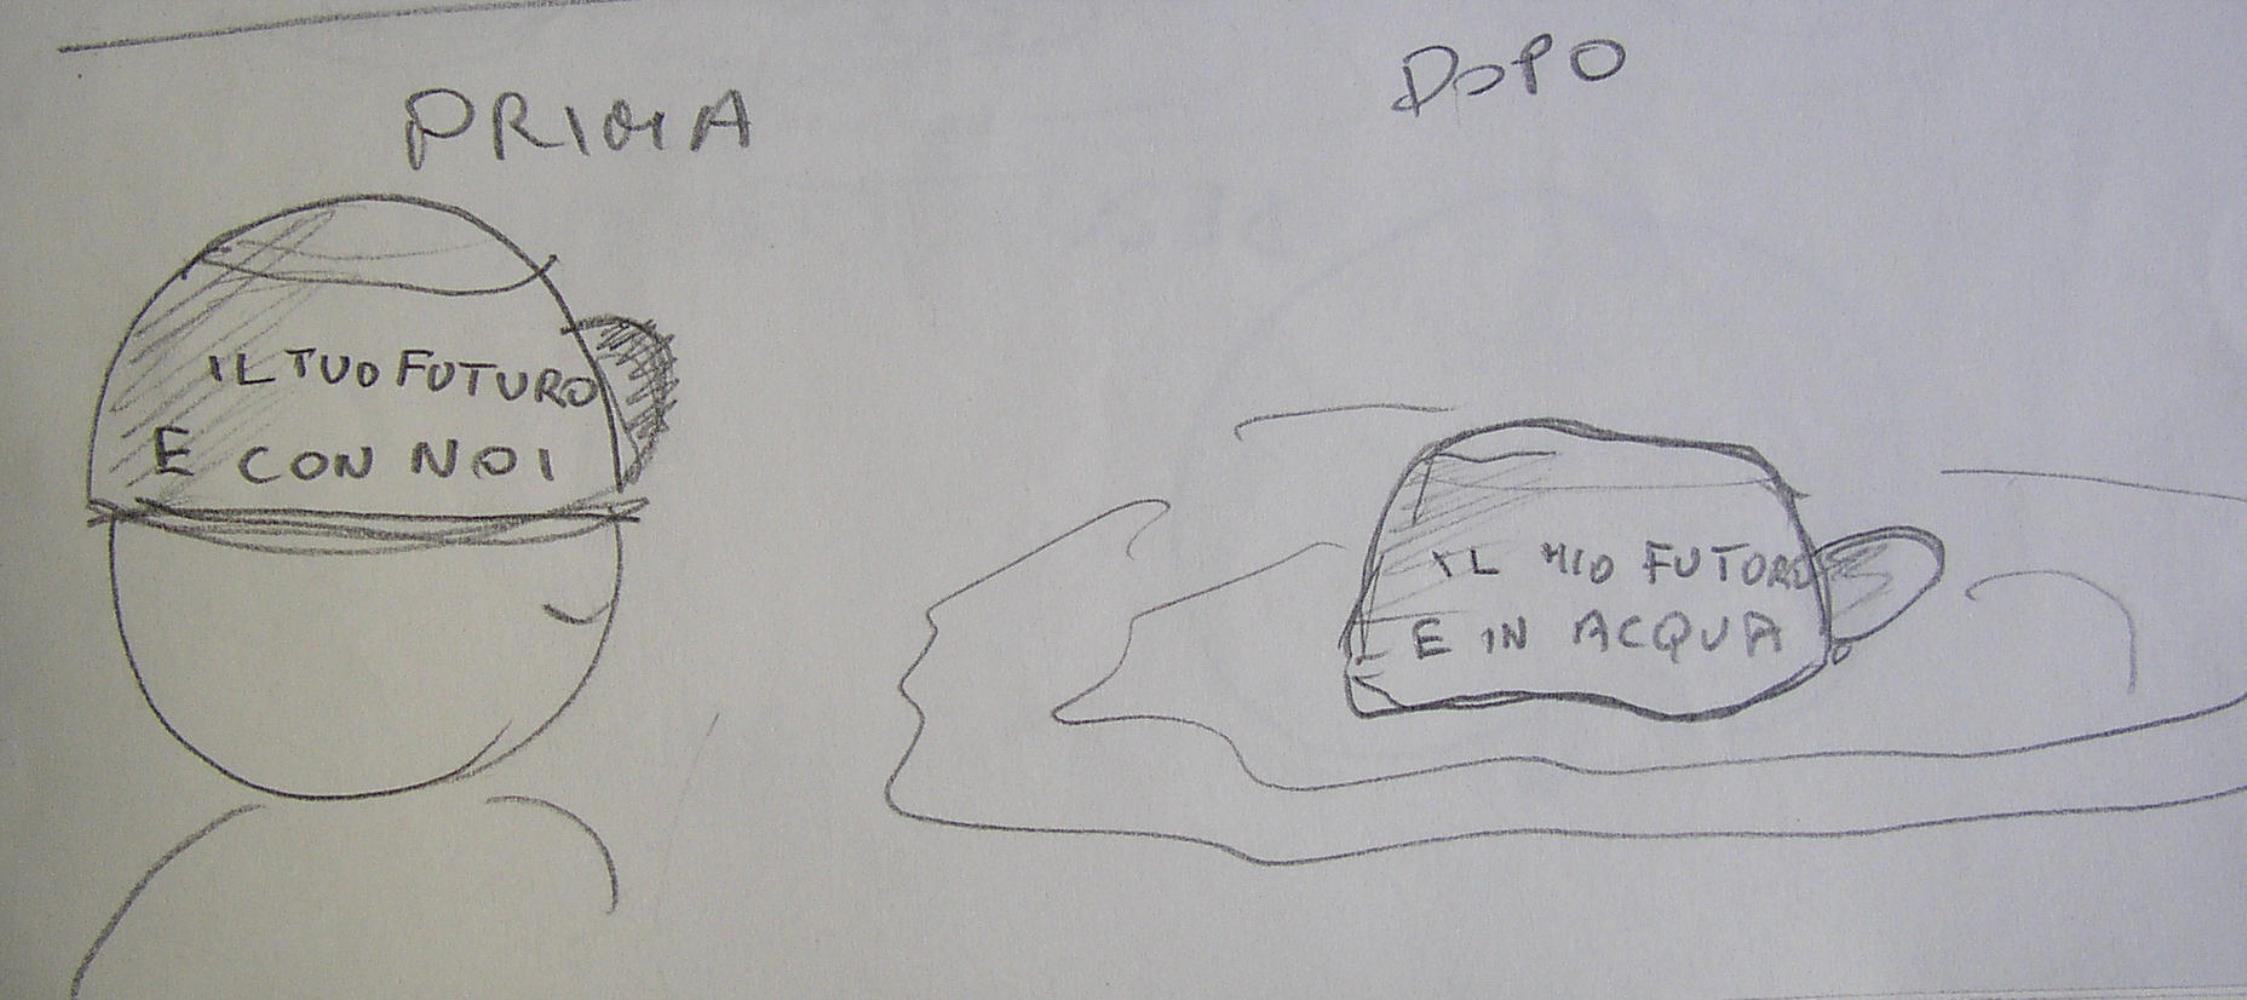 PRIMA
IL TUO FUTURO
E CON NOI
DOPO
IL MIO FUTURO
E IN ACQUA